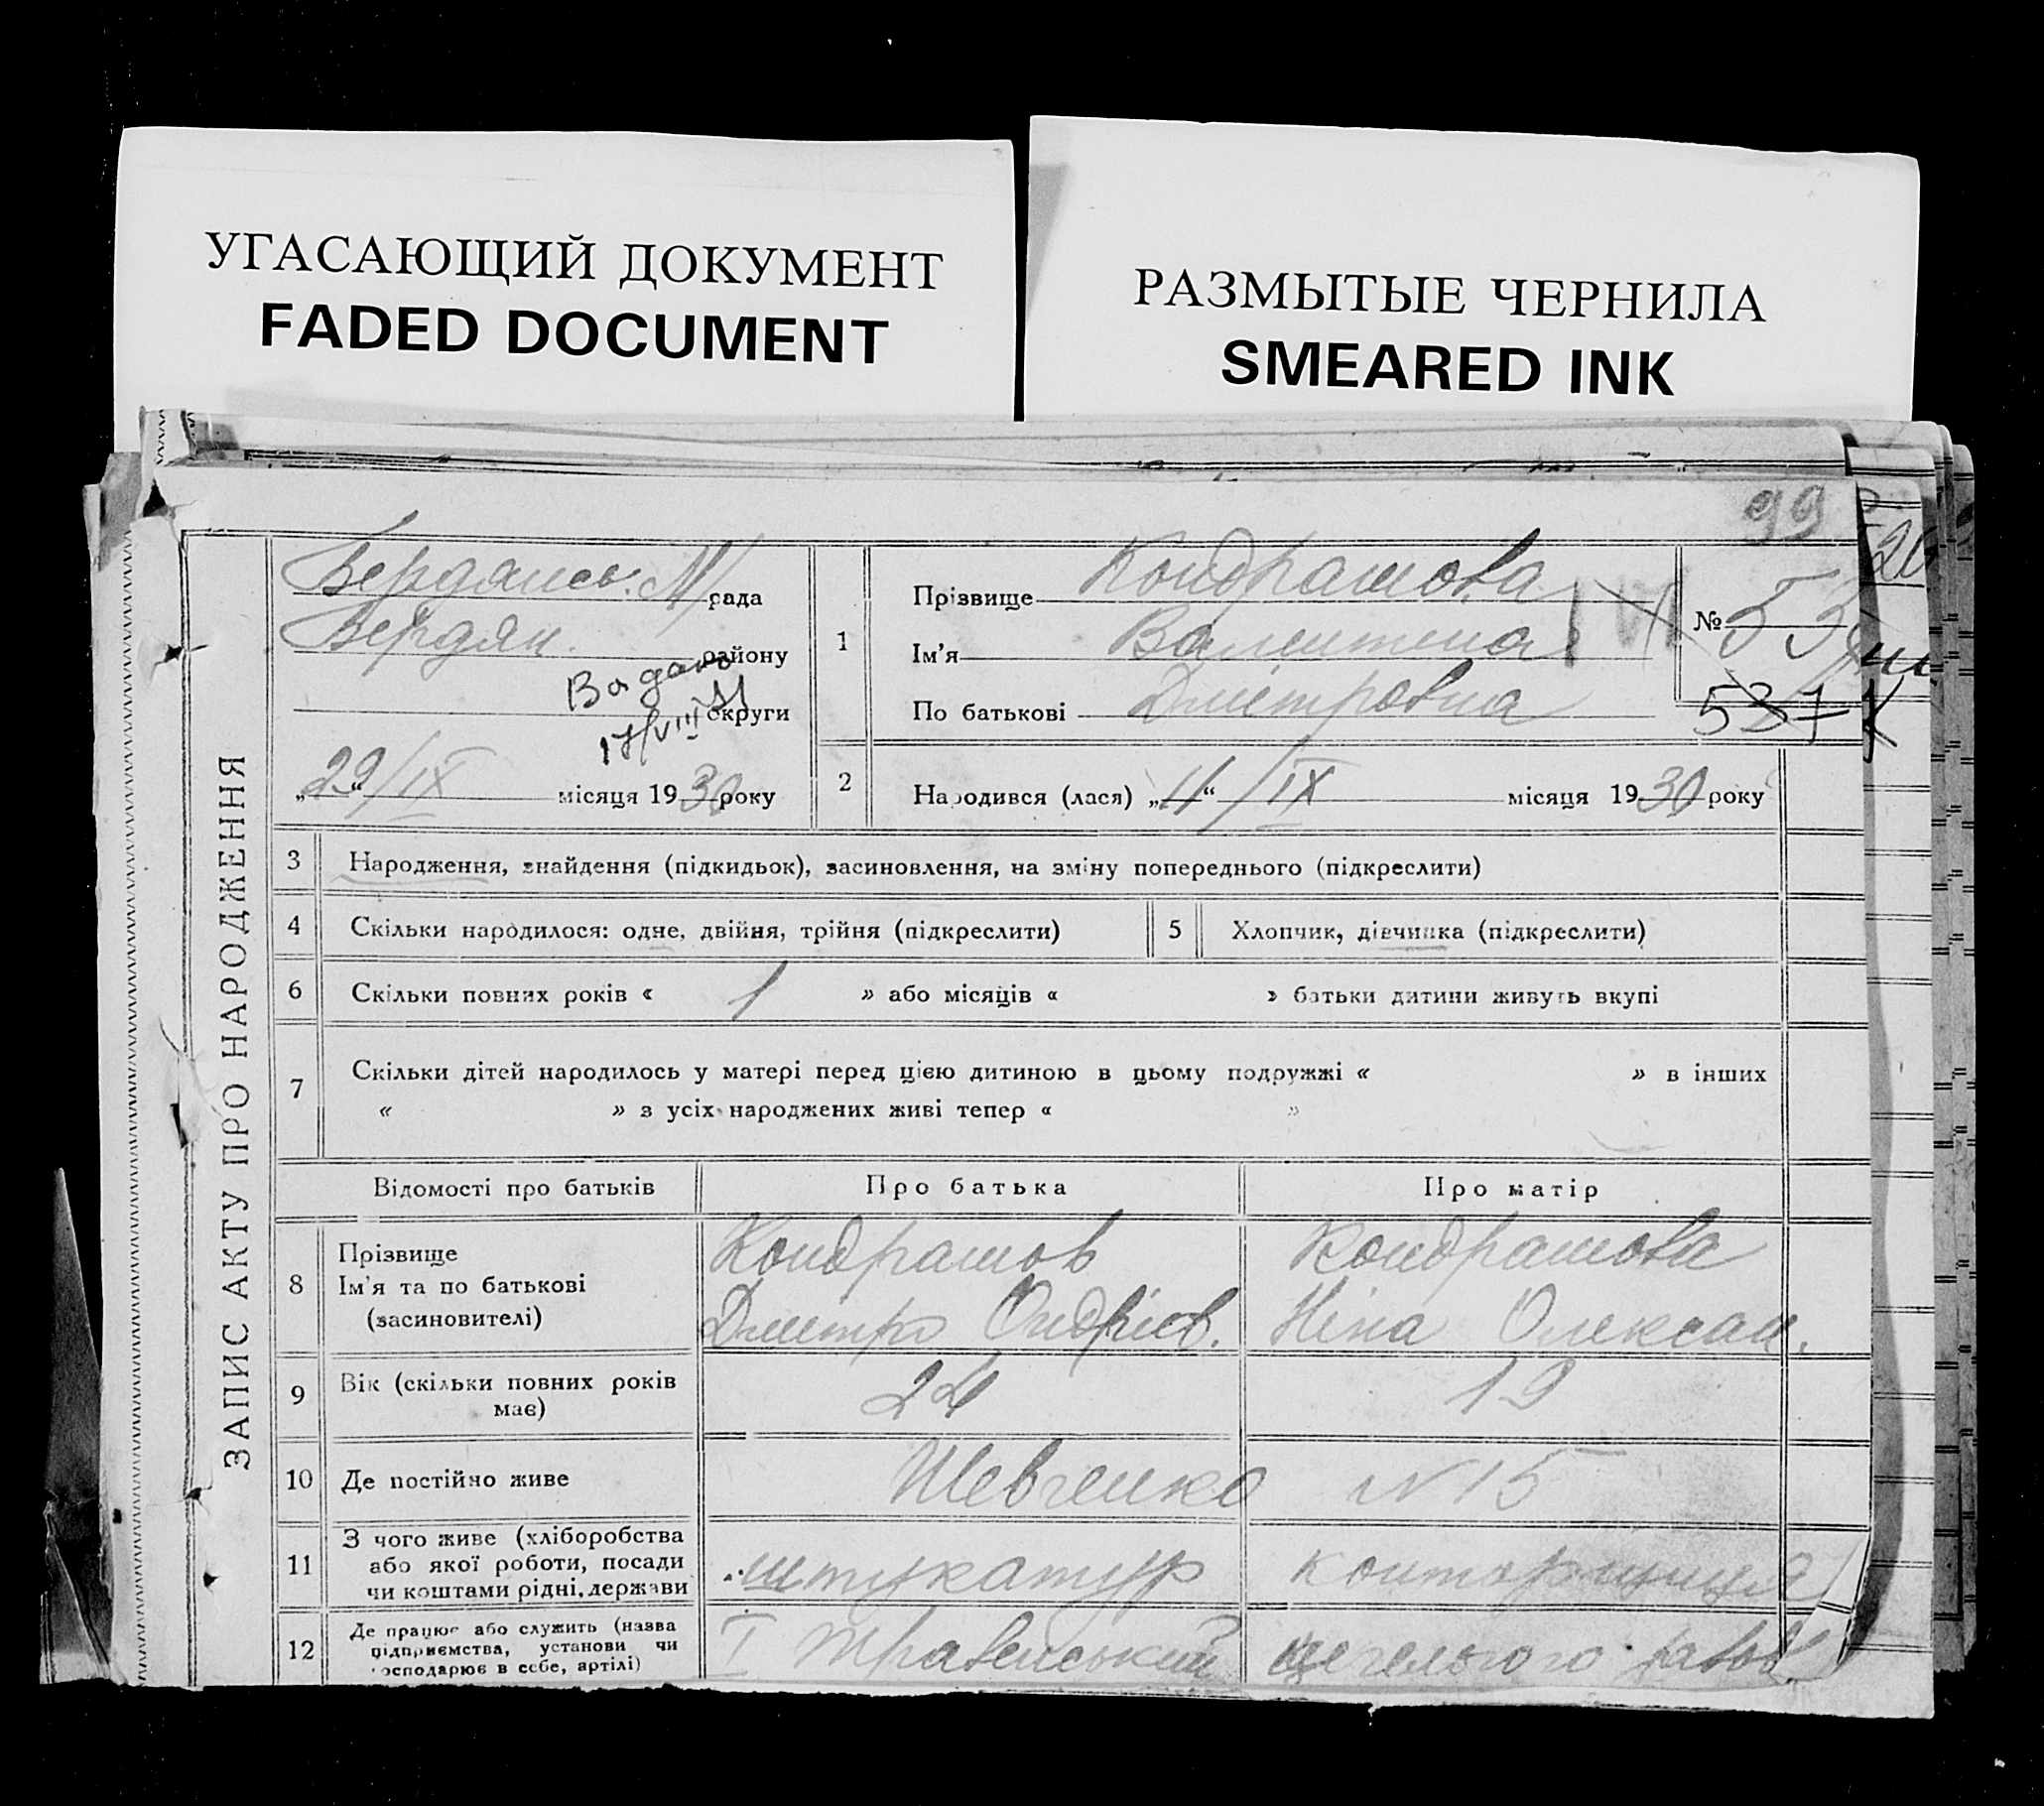 УГАСАЮЩИЙ ДОКУМЕНТ
FADED DOCUMENT
РАЗМЫТЫЕ ЧЕРНИЛА
SMEARED INK
99
ЗАПИС АКТУ ПРО НАРОДЖЕННЯ
Бердянсь. М/рада
Бердян. району
округи
17/VIII
„29“/IX місяця 1930 року
1
Прізвище Кондрашова
Ім'я Валентина
По батькові Дмітровна
№
537
2 Народився (лася) „11“/IX місяця 1930 року
3 Народження, знайдення (підкидьок), засиновлення, на зміну попереднього (підкреслити)
4 Скільки народилося: одне, двійня, трійня (підкреслити)
5 Хлопчик, дівчинка (підкреслити)
6 Скільки повних років « 1 » або місяців « » батьки дитини живуть вкупі
7 Скільки дітей народилось у матері перед цією дитиною в цьому подружжі « » в інших
« » з усіх народжених живі тепер « »
Відомості про батьків Про батька Про матір
8 Прізвище Кондрашов Кондрашова
Ім'я та по батькові Дмітро Ондрієв. Ніна Олексан.
(засиновителі)
9 Вік (скільки повних років має) 24 19
10 Де постійно живе Шевченко №15
11 З чого живе (хліборобства
або якої роботи, посади
чи коштами рідні, держави
штукатур конторщиця
12 Де працює або служить (назва
підприємства, установи чи
господарює в себе, артілі)
І Травенський цегельного завод